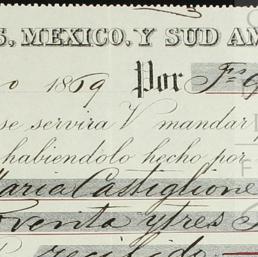 S. MEXICO. Y SUD AM
o 1869 Por
se servira V mandar
habiendolo hecho por
Maria Castiglione
oventa y tres
recibido